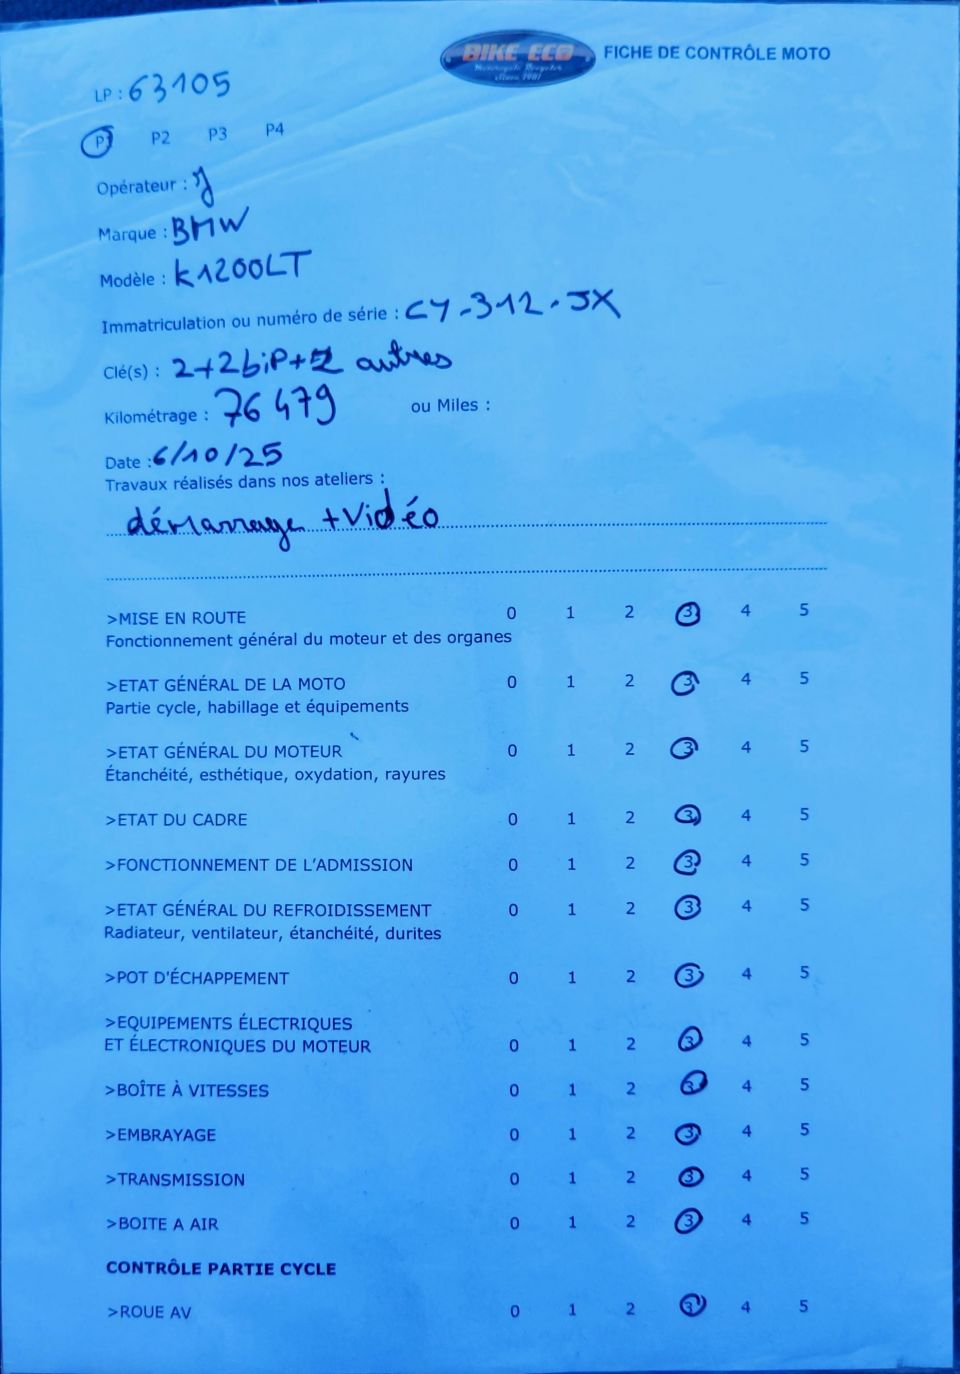 BIKE ECO
Motorcycle Recycler
Since 1987
FICHE DE CONTRÔLE MOTO
LP : 63105
P1 P2 P3 P4
Opérateur : J
Marque : BMW
Modèle : K1200LT
Immatriculation ou numéro de série : CY-312-JX
Clé(s) : 2+2 bip+2 autres
Kilométrage : 76479 ou Miles :
Date : 6/10/25
Travaux réalisés dans nos ateliers :
démarrage + vidéo
>MISE EN ROUTE 0 1 2 3 4 5
Fonctionnement général du moteur et des organes
>ETAT GÉNÉRAL DE LA MOTO 0 1 2 3 4 5
Partie cycle, habillage et équipements
>ETAT GÉNÉRAL DU MOTEUR 0 1 2 3 4 5
Étanchéité, esthétique, oxydation, rayures
>ETAT DU CADRE 0 1 2 3 4 5
>FONCTIONNEMENT DE L'ADMISSION 0 1 2 3 4 5
>ETAT GÉNÉRAL DU REFROIDISSEMENT 0 1 2 3 4 5
Radiateur, ventilateur, étanchéité, durites
>POT D'ÉCHAPPEMENT 0 1 2 3 4 5
>EQUIPEMENTS ÉLECTRIQUES
ET ÉLECTRONIQUES DU MOTEUR 0 1 2 3 4 5
>BOÎTE À VITESSES 0 1 2 3 4 5
>EMBRAYAGE 0 1 2 3 4 5
>TRANSMISSION 0 1 2 3 4 5
>BOITE A AIR 0 1 2 3 4 5
CONTRÔLE PARTIE CYCLE
>ROUE AV 0 1 2 3 4 5